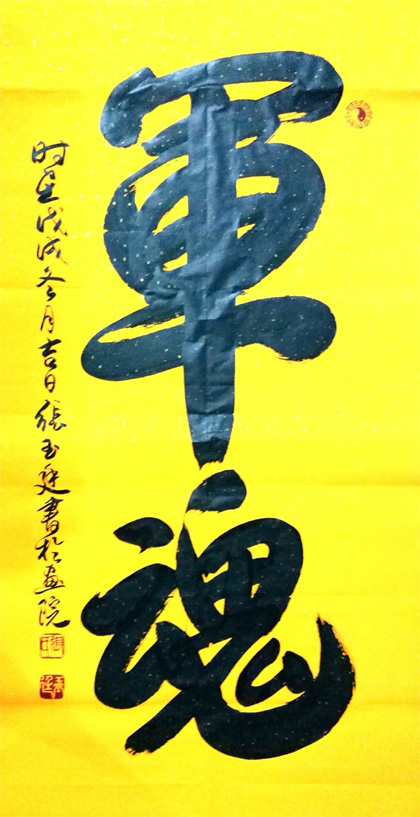 軍魂
时在戊戌冬月吉日張玉庭書於画院